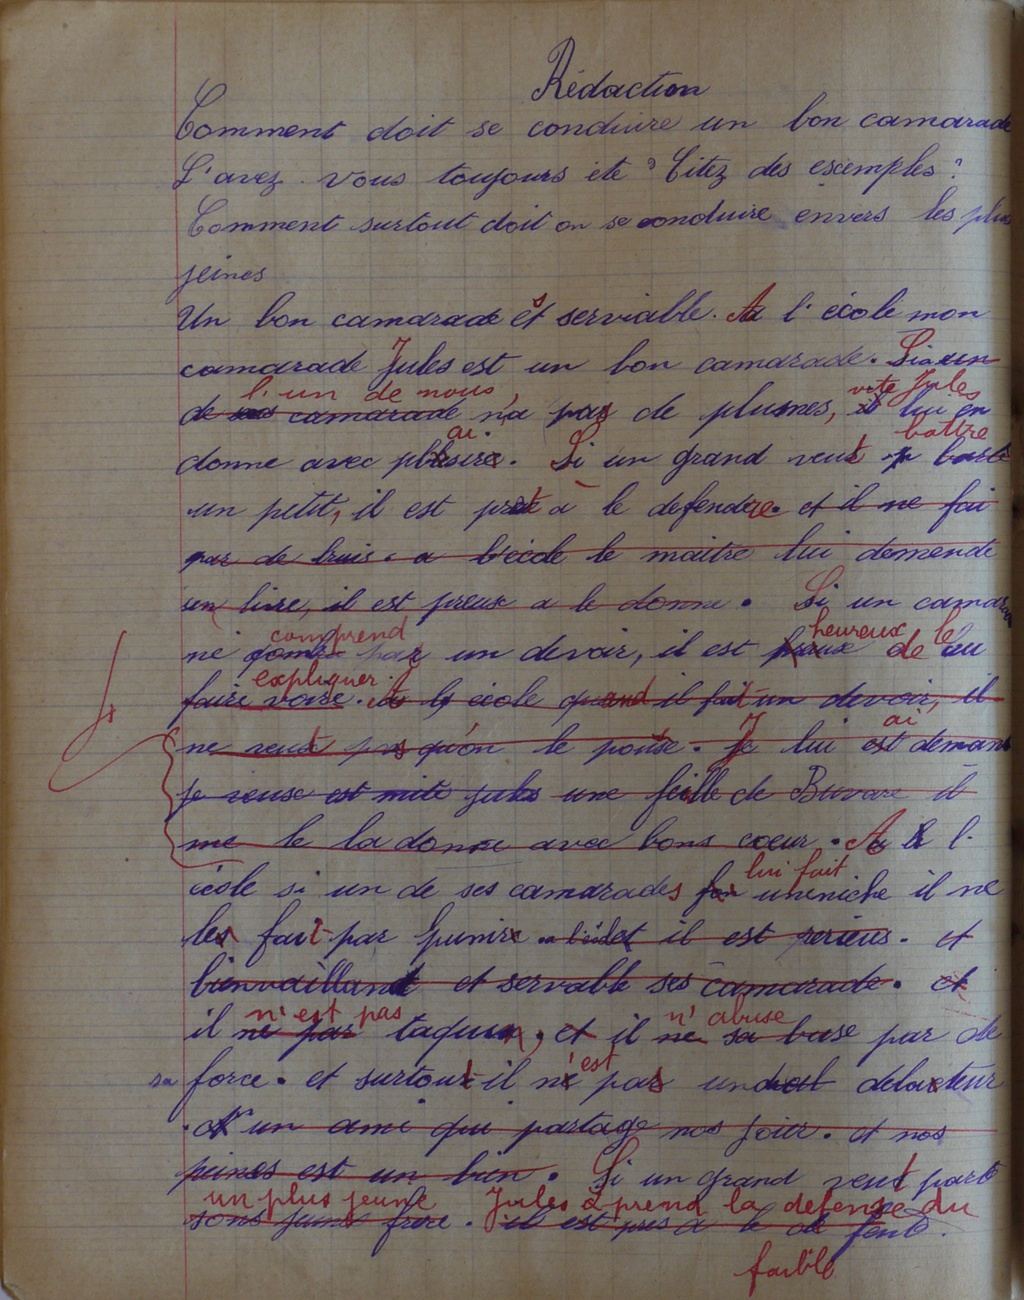 Rédaction
Comment doit se conduire un bon camarade
L'avez vous toujours été? Citez des escemples?
Comment surtout doit on se conduire envers les plus
jeines
Un bon camarade est serviable. A l'école mon
camarade Jules est un bon camarade. Si un
l'un de nous, vite Jules
de ses camarade n'a pas de plumes, il lui en
ai battre
donne avec plesire. Si un grand veut batre
un petit, il est prêt à le defendre. et il ne fai
par de bruis. a l'école le maitre lui demende
un livre, il est preux a le donne. Si un camara
comprend heureux le
ne par un devoir, il est de
expliquer.
faire voire. A l école quand il fait un devoir, il
ai
ne veut pas qu'on le pouse. Je lui est demand
je veuse est mite jules une feille de Buvare il
me le la donne avec bons coeur. A l'
lui fait
école si un de ses camarades une niche il ne
les fait par punire. et il est serieus. et
bienvaillant et servable ses camarade. et
n'est pas n'abuse
il ne par taquin, et il ne sa buse par de
est
sa force. et surtout il ne pas un delateur
un ami qui partage nos joier. et nos
peines est un bien. Si un grand veut parte
un plus jeune Jules prend la defense du
sons jeune frère. il est pres a le de fend.
faible